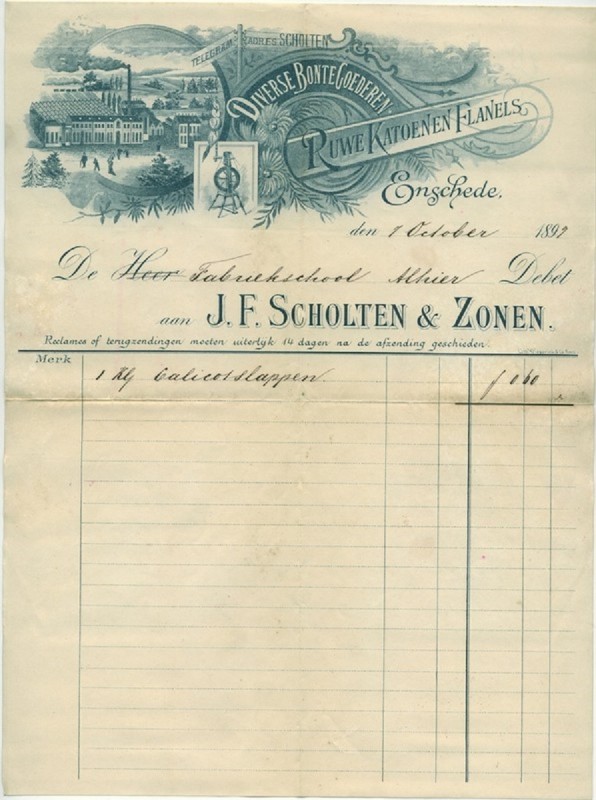 TELEGRAM ADRES SCHOLTEN
DIVERSE BONTE GOEDEREN
RUWE KATOENEN FLANELS
Enschede,
den 1 October 1899
De Heer Fabriekschool Alhier Debet
aan J. F. SCHOLTEN & ZONEN.
Reclames of terugzendingen moeten uiterlyk 14 dagen na de afzending geschieden.
Merk
1 Kg Calicotslappen. f 0.60